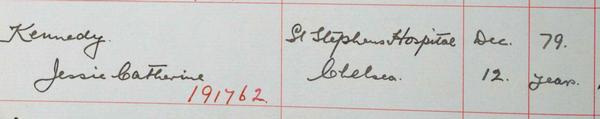 Kennedy. St Stephens Hospital Dec. 79.
Jessie Catherine Chelsea. 12. years.
191762.